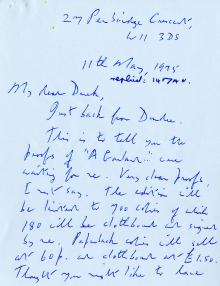 27 Pembridge Crescent,
W11 3DS
11th May, 1975
replied: 14 May.
My dear
Just back from
This is to tell you the
proofs of "A ... are
waiting for me. Very clean proofs,
I must say. The edition will
be limited to 700 copies of which
180 will be clothbound and signed
by me. Paperback copies will sell
at 60p. and clothbound at £1.50.
Thought you might like to have